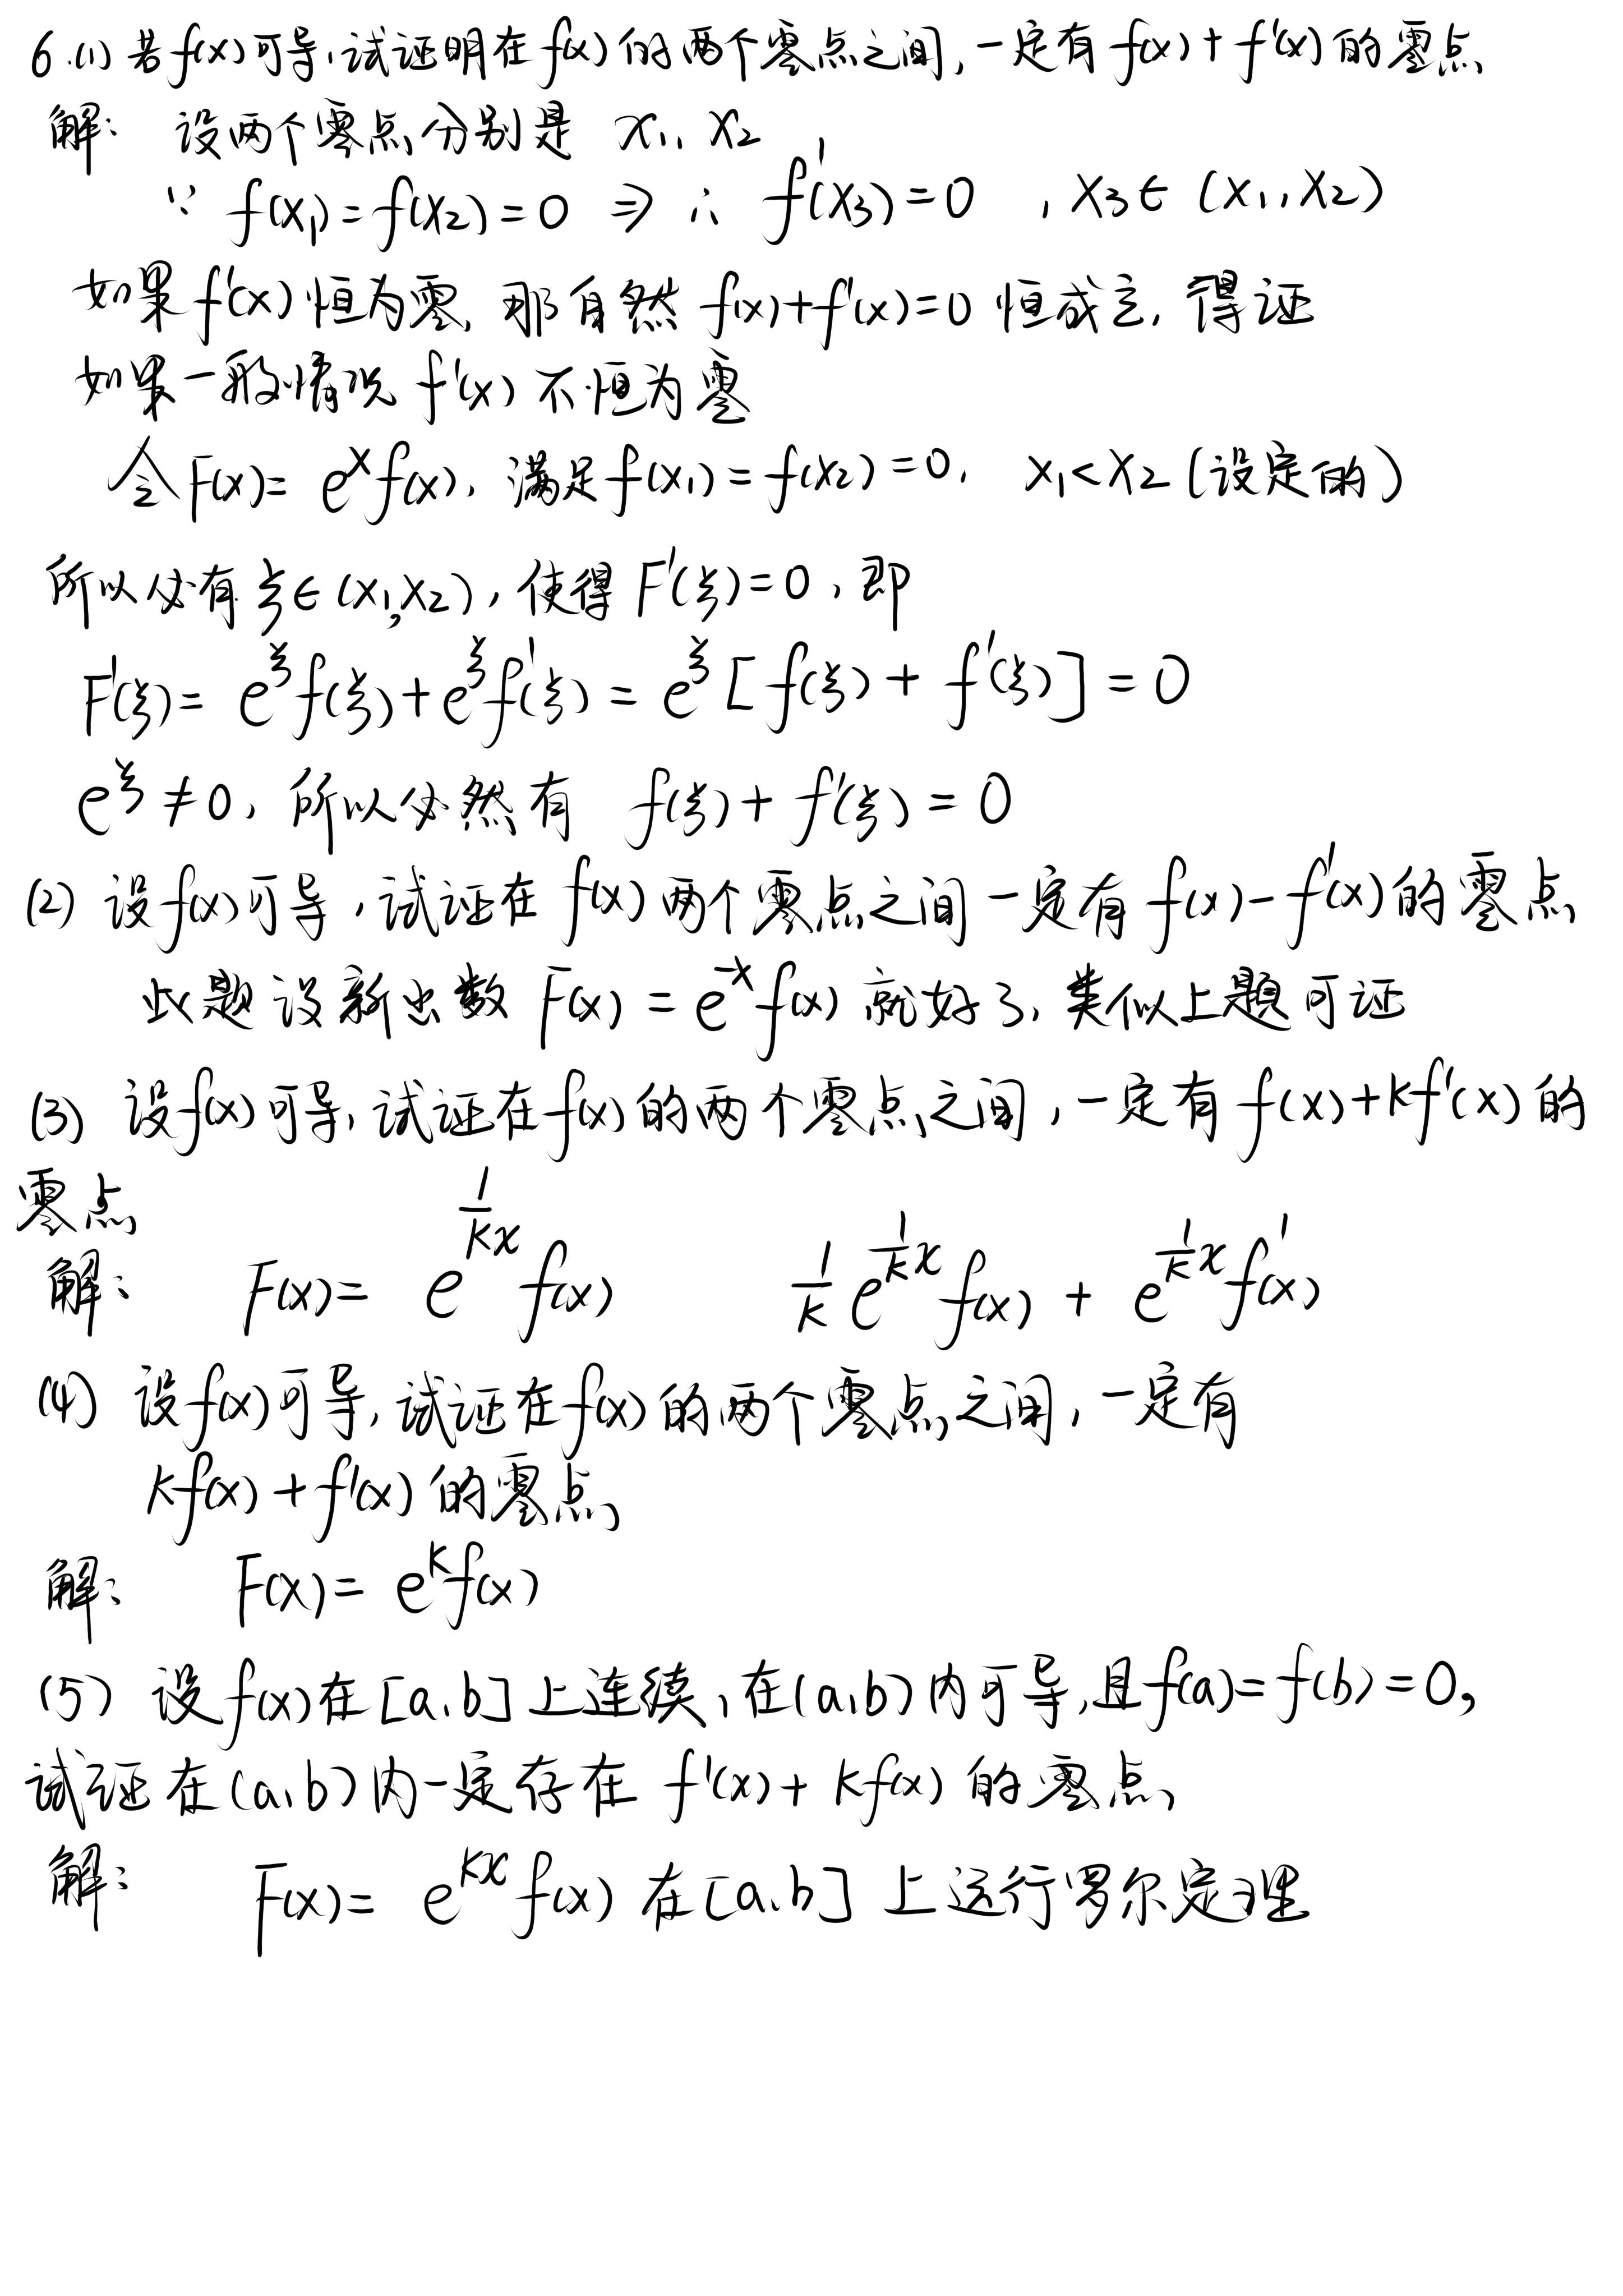 6.(1) 若f(x)可导,试证明在f(x)的两个零点之间,一定有f(x)+f'(x)的零点
解: 设两个零点分别是 x₁, x₂
∵ f(x₁)=f(x₂)=0 ⇒ ∴ f'(x₃)=0 , x₃∈(x₁,x₂)
如果f'(x)恒为零,那自然f(x)+f'(x)=0恒成立,得证
如果一般情况f'(x)不恒为零
令F(x)= eˣf(x), 满足f(x₁)=f(x₂)=0, x₁<x₂(设定的)
所以必有ξ∈(x₁,x₂),使得F'(ξ)=0,即
F'(ξ)= e^ξ f(ξ)+e^ξ f'(ξ) = e^ξ [f(ξ)+f'(ξ)]=0
e^ξ≠0, 所以必然有 f(ξ)+f'(ξ)=0
(2) 设f(x)可导,试证在f(x)两个零点之间一定有f(x)-f'(x)的零点
此题设新出数F(x)=e^-x f(x)就好了,类似上题可证
(3) 设f(x)可导,试证在f(x)的两个零点之间,一定有f(x)+kf'(x)的
零点
解: F(x)= e^(1/k x) f(x) 1/k e^(1/k x) f(x) + e^(1/k x) f'(x)
(4) 设f(x)可导,试证在f(x)的两个零点之间,一定有
kf(x)+f'(x)的零点
解: F(x)= e^k f(x)
(5) 设f(x)在[a,b]上连续,在(a,b)内可导,且f(a)=f(b)=0,
试证在(a,b)内一定存在 f'(x)+kf(x)的零点
解: F(x)= e^kx f(x)在[a,b]上运行罗尔定理